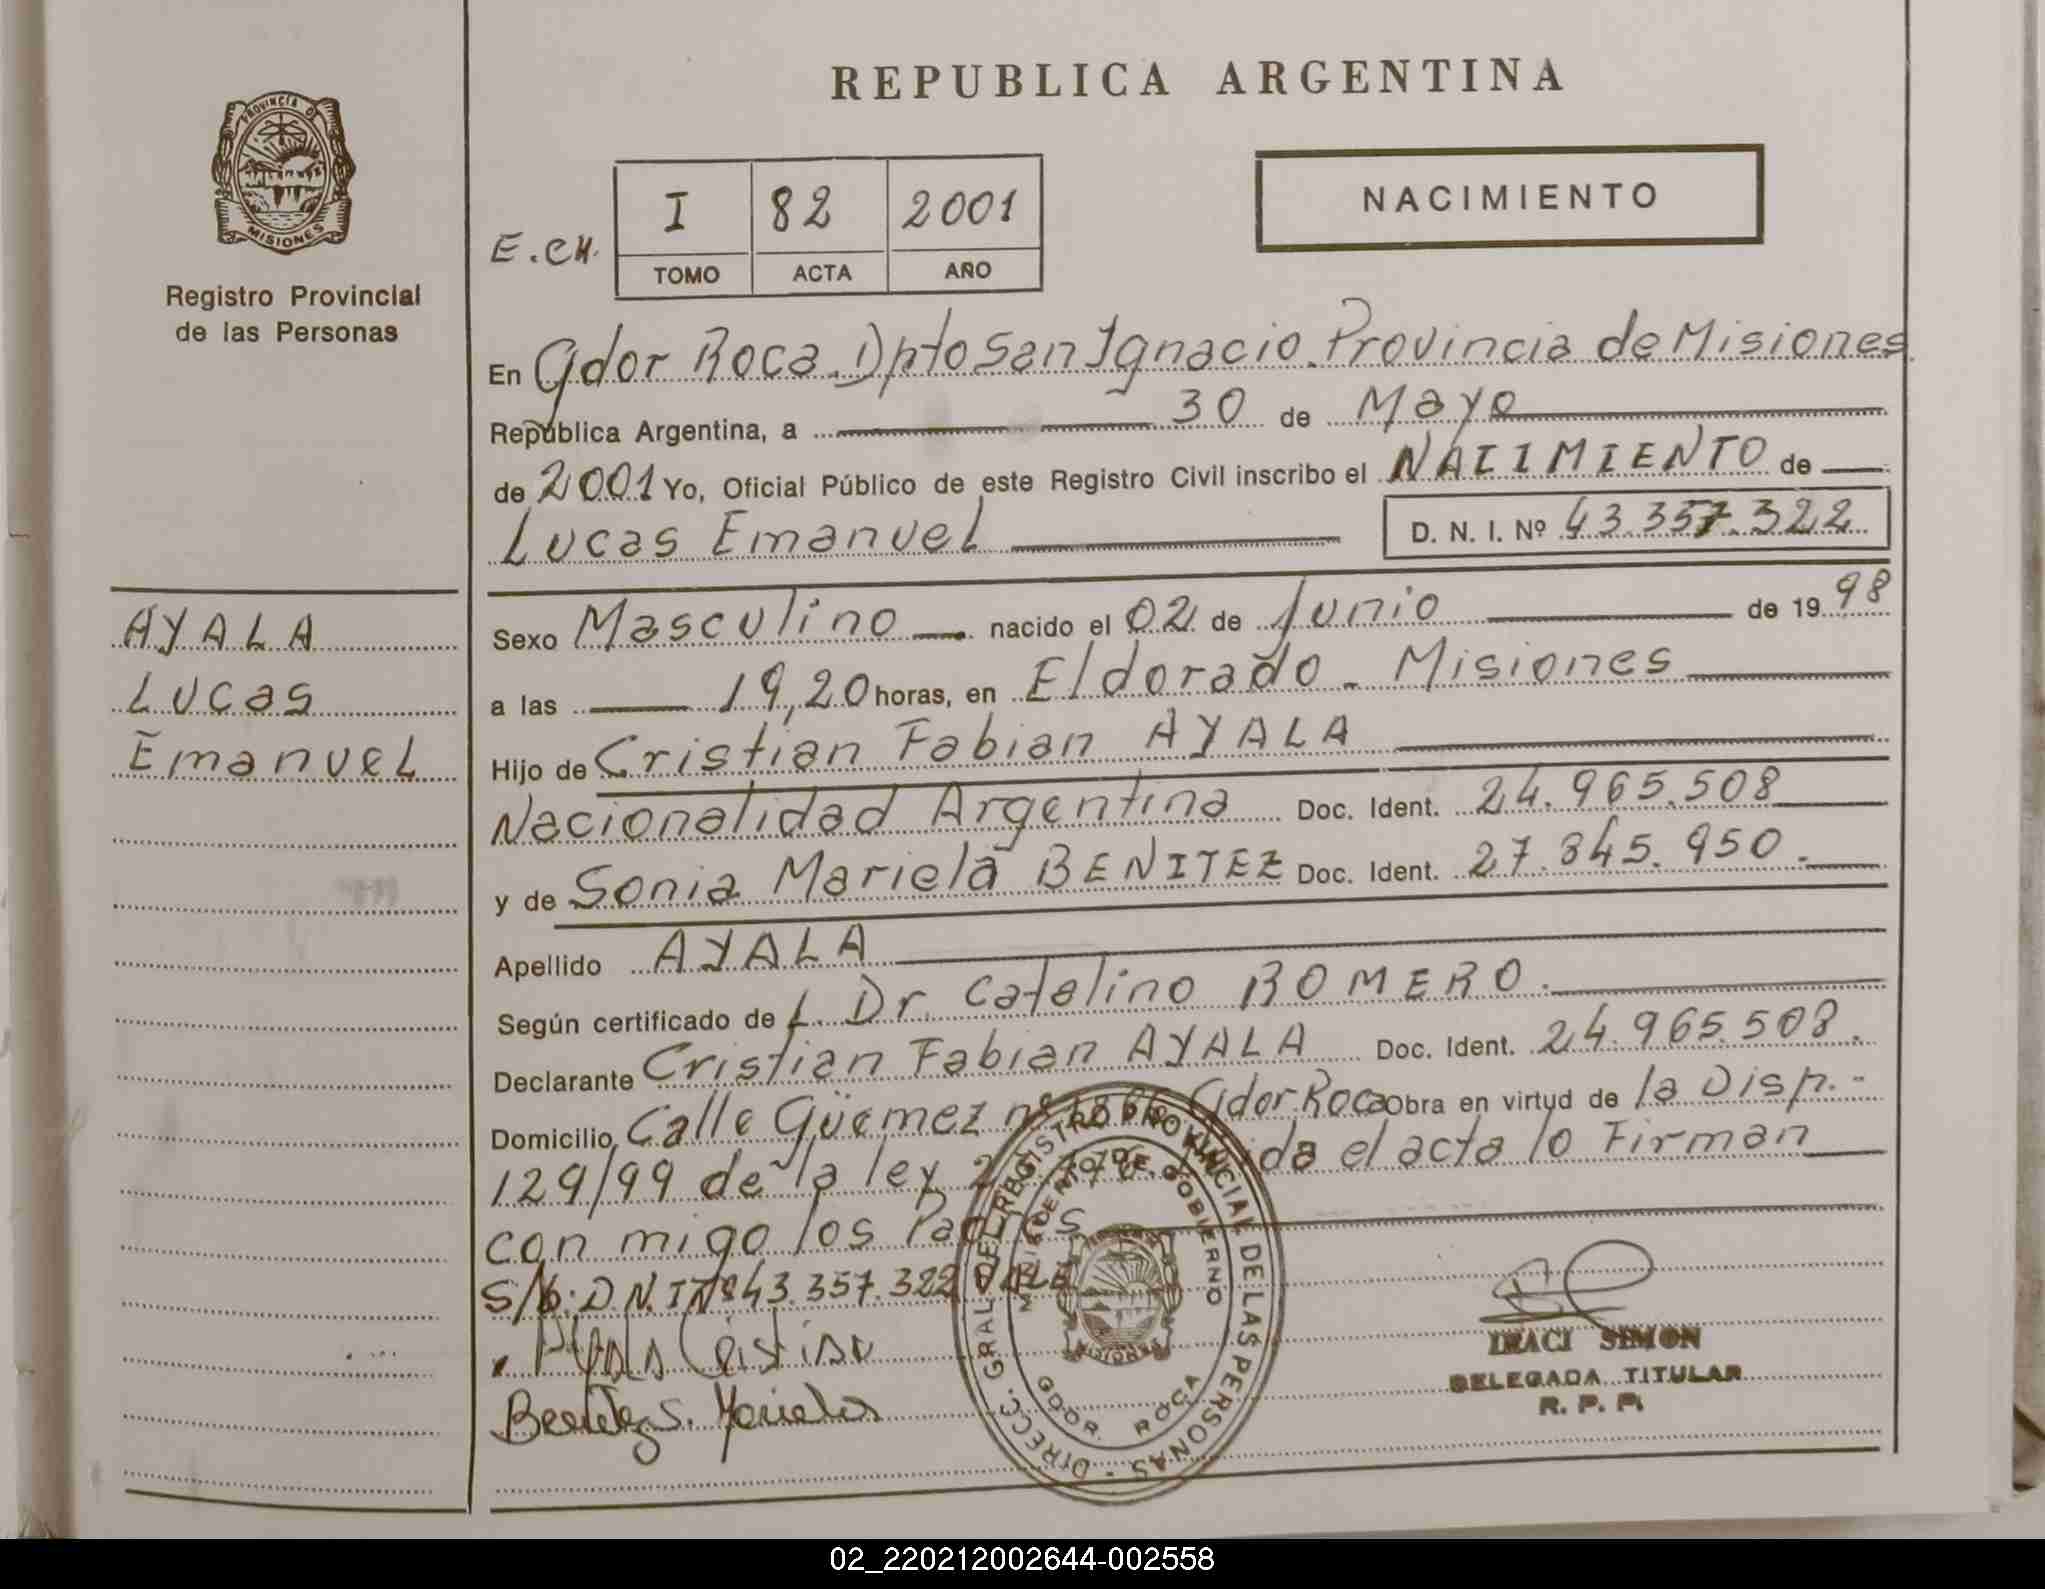 REPUBLICA ARGENTINA
PROVINCIA DE
MISIONES
Registro Provincial
de las Personas
E.CH.
I 82 2001
TOMO ACTA AÑO
NACIMIENTO
En Gdor Roca. Dpto San Ignacio. Provincia de Misiones
República Argentina, a 30 de Mayo
de 2001 Yo, Oficial Público de este Registro Civil inscribo el NACIMIENTO de
Lucas Emanuel D. N. I. Nº 43.357.322
AYALA
Lucas
Emanuel
Sexo Masculino nacido el 02 de Junio de 1998
a las 19,20 horas, en Eldorado - Misiones
Hijo de Cristian Fabian AYALA
Nacionalidad Argentina Doc. Ident. 24.965.508
y de Sonia Mariela BENITEZ Doc. Ident. 27.845.950.
Apellido AYALA
Según certificado de L. Dr. Catalino ROMERO.
Declarante Cristian Fabian AYALA Doc. Ident. 24.965.508.
Domicilio Calle Güemez nº Gdor. Roca Obra en virtud de la Disp.-
129/99 de la ley el acta lo Firman
con migo los Padres
S/b: D.N.I Nº 43.357.322 VALE
Ayala Cristian
Benitez S. Mariela
DIRECC. GRAL. DEL REGISTRO PROVINCIAL DE LAS PERSONAS -
MINISTERIO DE GOBIERNO
MISIONES
GDOR. ROCA
IRACI SIMON
DELEGADA TITULAR
R. P. P.
02_220212002644-002558